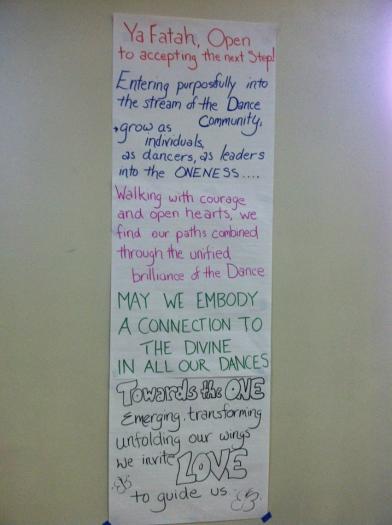 Ya Fatah, Open
to accepting the next Step!
Entering purposfully into
the stream of the Dance
Community,
grow as
individuals,
as dancers, as leaders
into the ONENESS....
Walking with courage
and open hearts, we
find our paths combined
through the unified
brilliance of the Dance
MAY WE EMBODY
A CONNECTION TO
THE DIVINE
IN ALL OUR DANCES
Towards the ONE
Emerging, transforming
unfolding our wings
we invite LOVE
to guide us